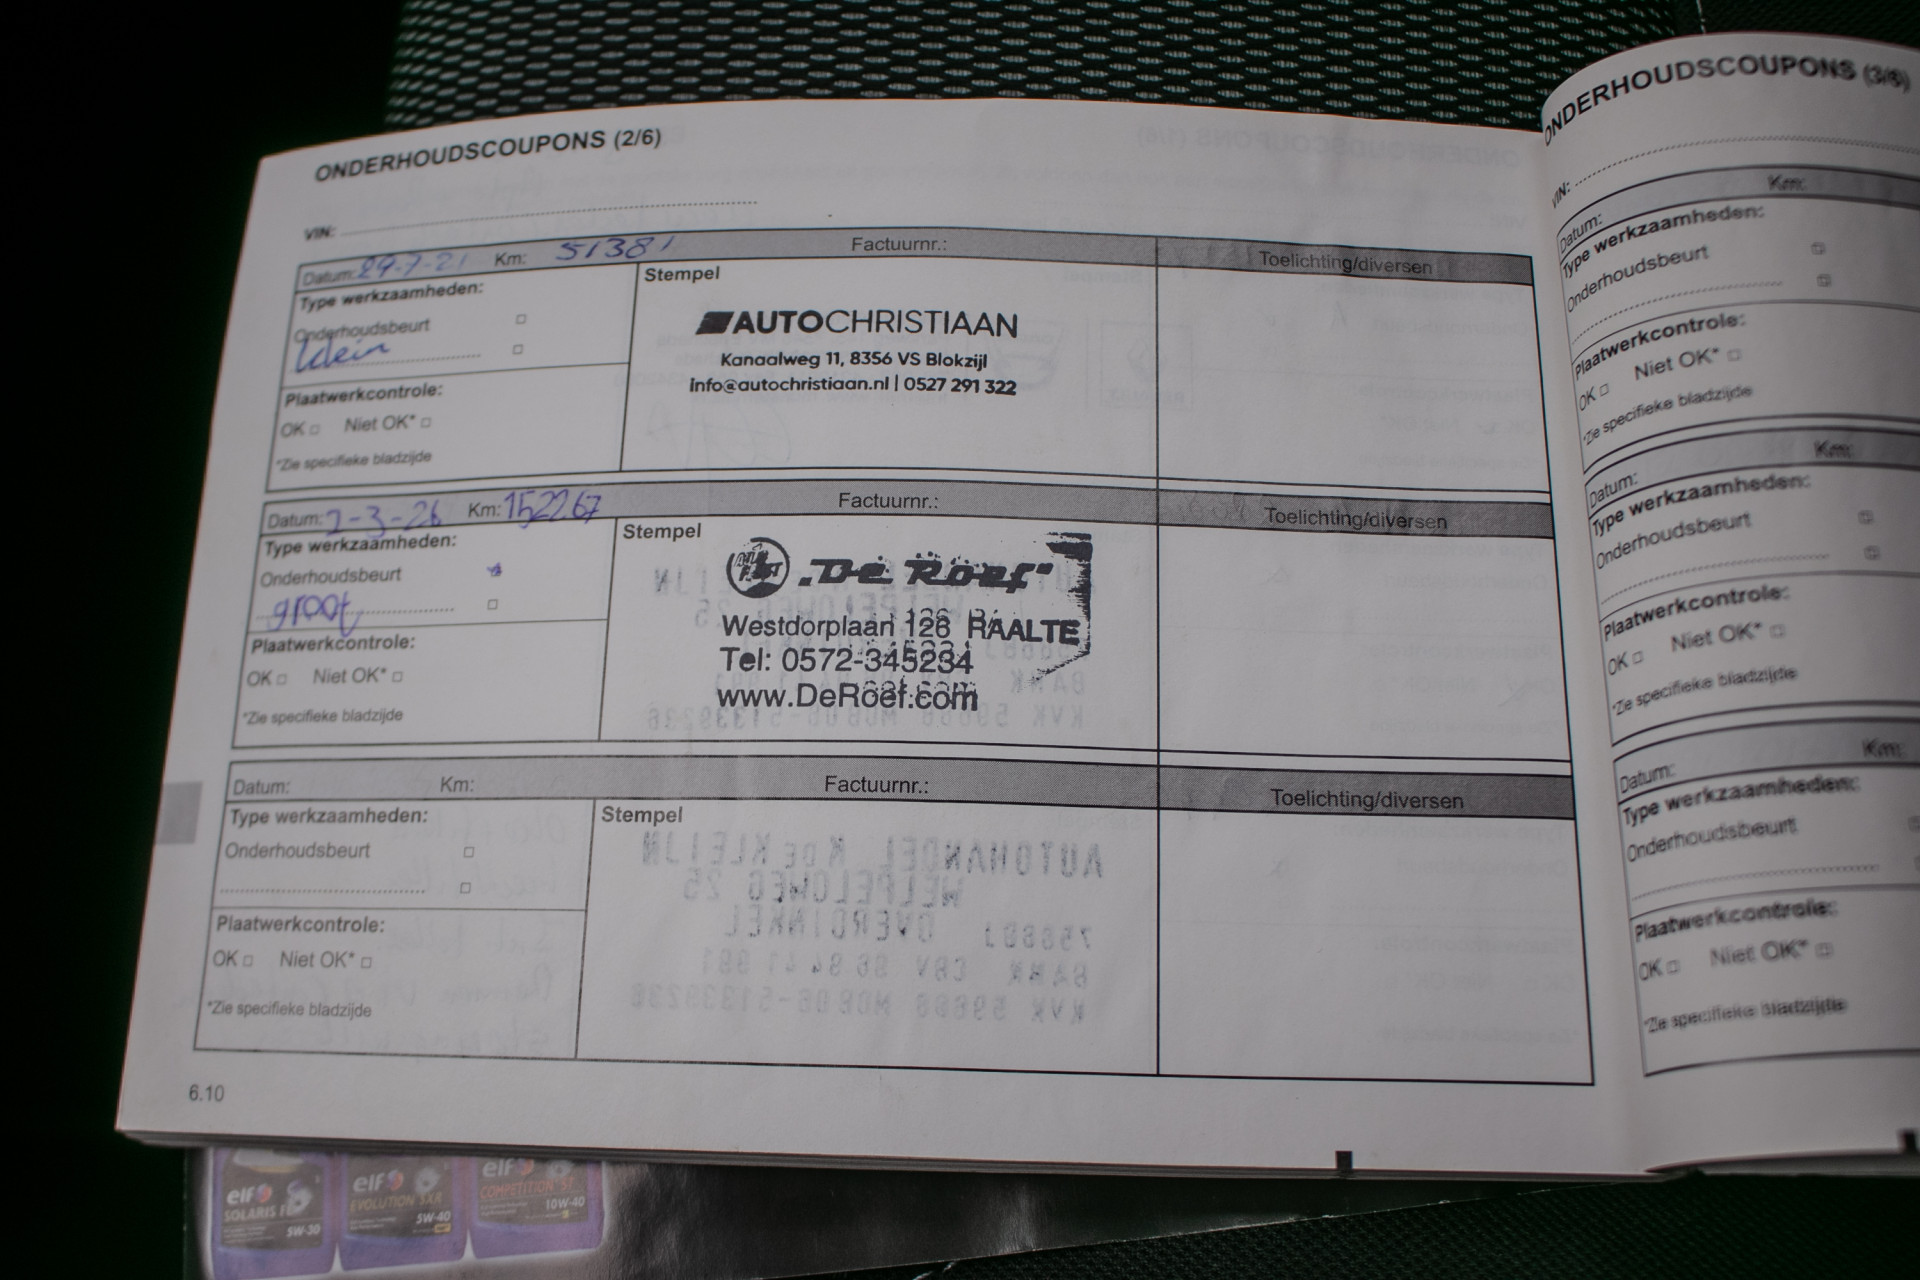 ONDERHOUDSCOUPONS (2/6)
VIN:
Datum: 29-7-21 Km: 51381 Factuurnr.: Toelichting/diversen
Type werkzaamheden:
Onderhoudsbeurt
klein
Plaatwerkcontrole:
OK Niet OK*
*Zie specifieke bladzijde
Stempel
AUTOCHRISTIAAN
Kanaalweg 11, 8356 VS Blokzijl
Info@autochristiaan.nl | 0527 291 322
Datum: 2-3-26 Km: 152267 Factuurnr.: Toelichting/diversen
Type werkzaamheden:
Onderhoudsbeurt
groot
Plaatwerkcontrole:
OK Niet OK*
*Zie specifieke bladzijde
Stempel
"De Roef"
Westdorplaan 126 RAALTE
Tel: 0572-345234
www.DeRoef.com
Datum: Km: Factuurnr.: Toelichting/diversen
Type werkzaamheden:
Onderhoudsbeurt
Plaatwerkcontrole:
OK Niet OK*
*Zie specifieke bladzijde
Stempel
AUTOHANDEL K DE KLEIJN
WELPELOWEG 25
OVERDINKEL
6.10
ONDERHOUDSCOUPONS (3/6)
VIN:
Datum: Km:
Type werkzaamheden:
Onderhoudsbeurt
Plaatwerkcontrole:
OK Niet OK*
*Zie specifieke bladzijde
Datum: Km:
Type werkzaamheden:
Onderhoudsbeurt
Plaatwerkcontrole:
OK Niet OK*
*Zie specifieke bladzijde
Datum: Km:
Type werkzaamheden:
Onderhoudsbeurt
Plaatwerkcontrole:
OK Niet OK*
*Zie specifieke bladzijde
elf
SOLARIS
5W-30
elf
EVOLUTION SXR
5W-40
elf
COMPETITION ST
10W-40